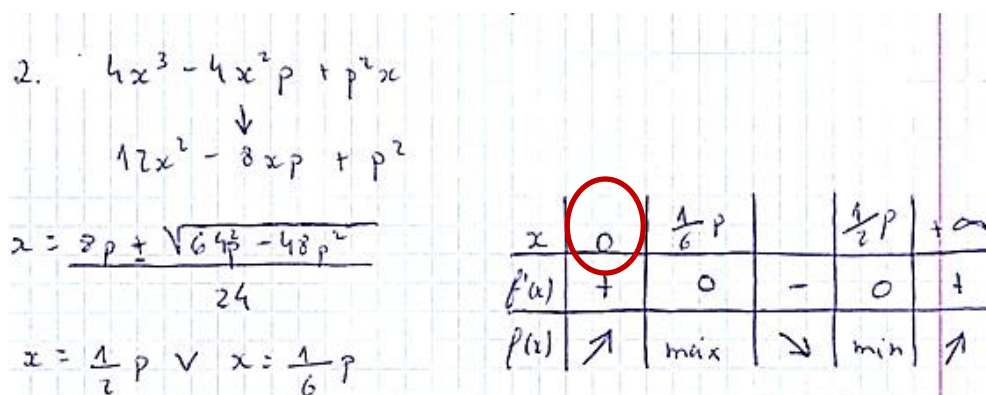 2. 4x³ - 4x²p + p²x
↓
12x² - 8xp + p²
x = 8p ± √64p² - 48p² / 24
x = 1/2 p ∨ x = 1/6 p
x | 0 | 1/6 p | | 1/2 p | +∞
f'(x) | + | 0 | - | 0 | +
f(x) | ↗ | máx | ↘ | min | ↗